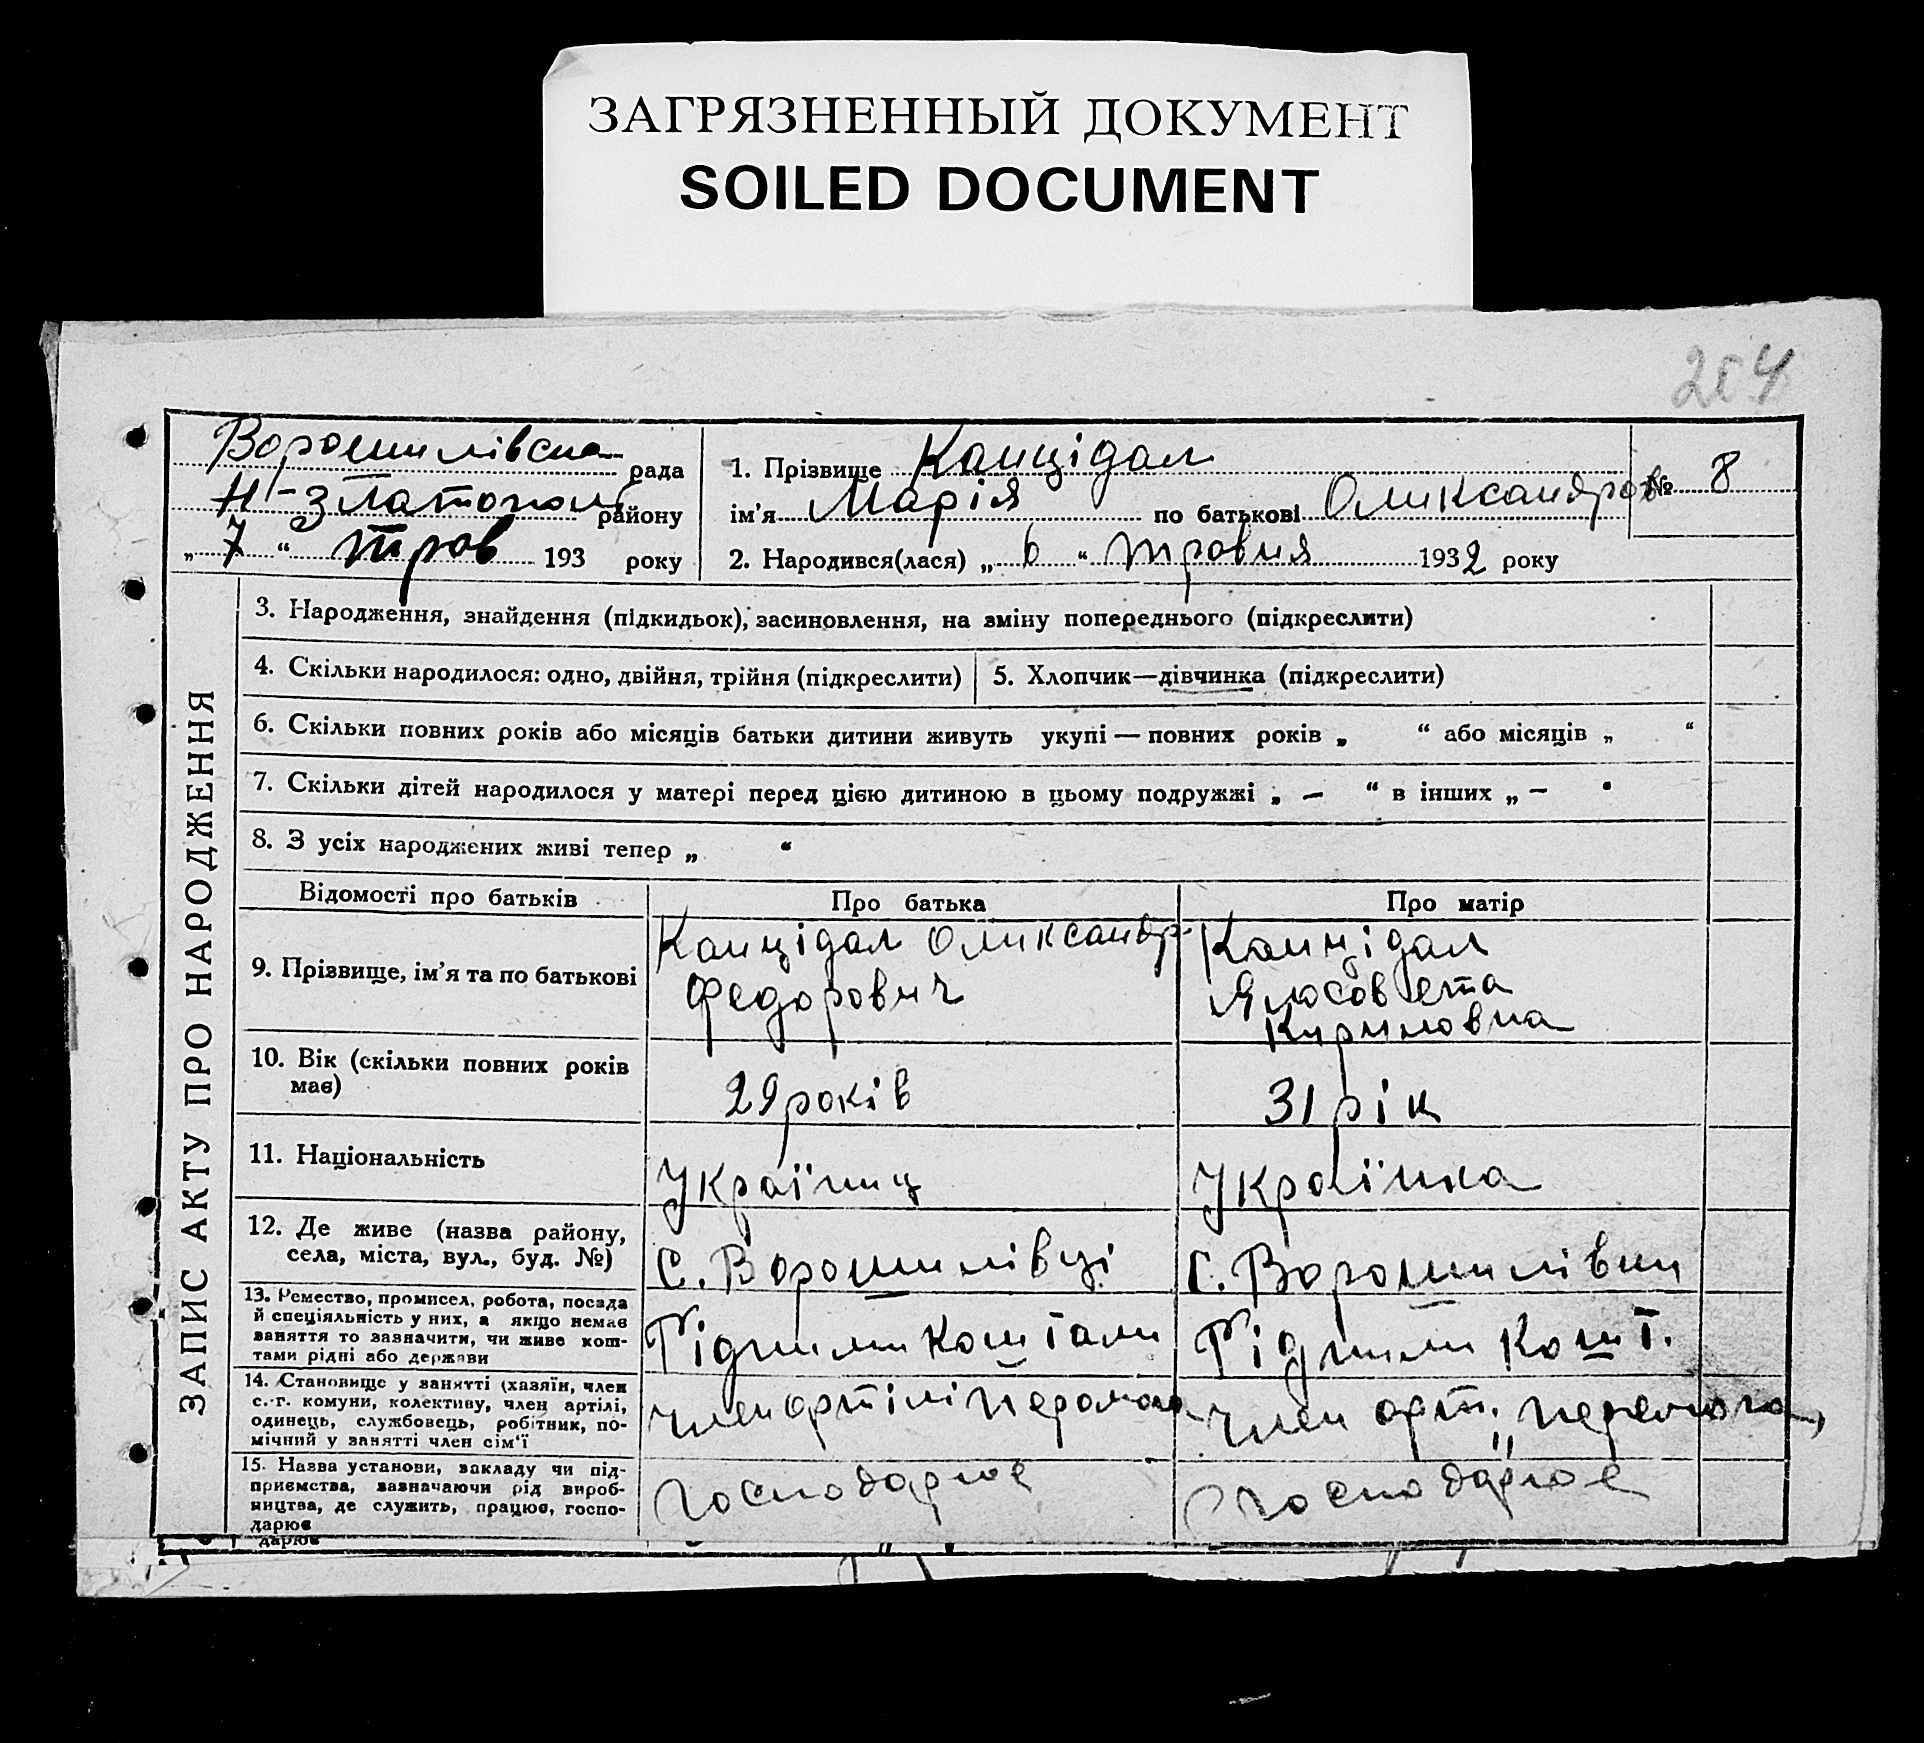 ЗАГРЯЗНЕННЫЙ ДОКУМЕНТ
SOILED DOCUMENT
264
Ворошилівська рада
Н-Златопол району
„ 7 “ трав 193 року
1. Прізвище Канцідал
ім'я Марія по батькові Оликсандров
№ 8
2. Народився(лася) „ 6 “ травня 1932 року
ЗАПИС АКТУ ПРО НАРОДЖЕННЯ
3. Народження, знайдення (підкидьок), засиновлення, на зміну попереднього (підкреслити)
4. Скільки народилося: одно, двійня, трійня (підкреслити)
5. Хлопчик—дівчинка (підкреслити)
6. Скільки повних років або місяців батьки дитини живуть укупі — повних років „ “ або місяців „ “
7. Скільки дітей народилося у матері перед цією дитиною в цьому подружжі „ — “ в інших „ — “
8. З усіх народжених живі тепер „ “
Відомості про батьків
Про батька
Про матір
9. Прізвище, ім'я та по батькові
Канцідал Оликсандр
Федорович
Канцідал
Кириловна
10. Вік (скільки повних років
має)
29 років
31 рік
11. Національність
Українець
Українка
12. Де живе (назва району,
села, міста, вул., буд. №)
С. Ворошилівці
С. Ворошилівци
13. Ремество, промисел, робота, посада
й спеціяльність у них, а якщо немає
заняття то зазначити, чи живе кош-
тами рідні або держави
Рідними коштами
Рідними кошт.
14. Становище у занятті (хазяїн, член
с.-г. комуни, колективу, член артілі,
одинець, службовець, робітник, по-
мічний у занятті член сім'ї
член артілі Перемога
член арт. „Перемога„
15. Назва установи, закладу чи під-
приємства, зазначаючи рід вироб-
ництва, де служить, працює, госпо-
дарює
господарює
господарює
дарює